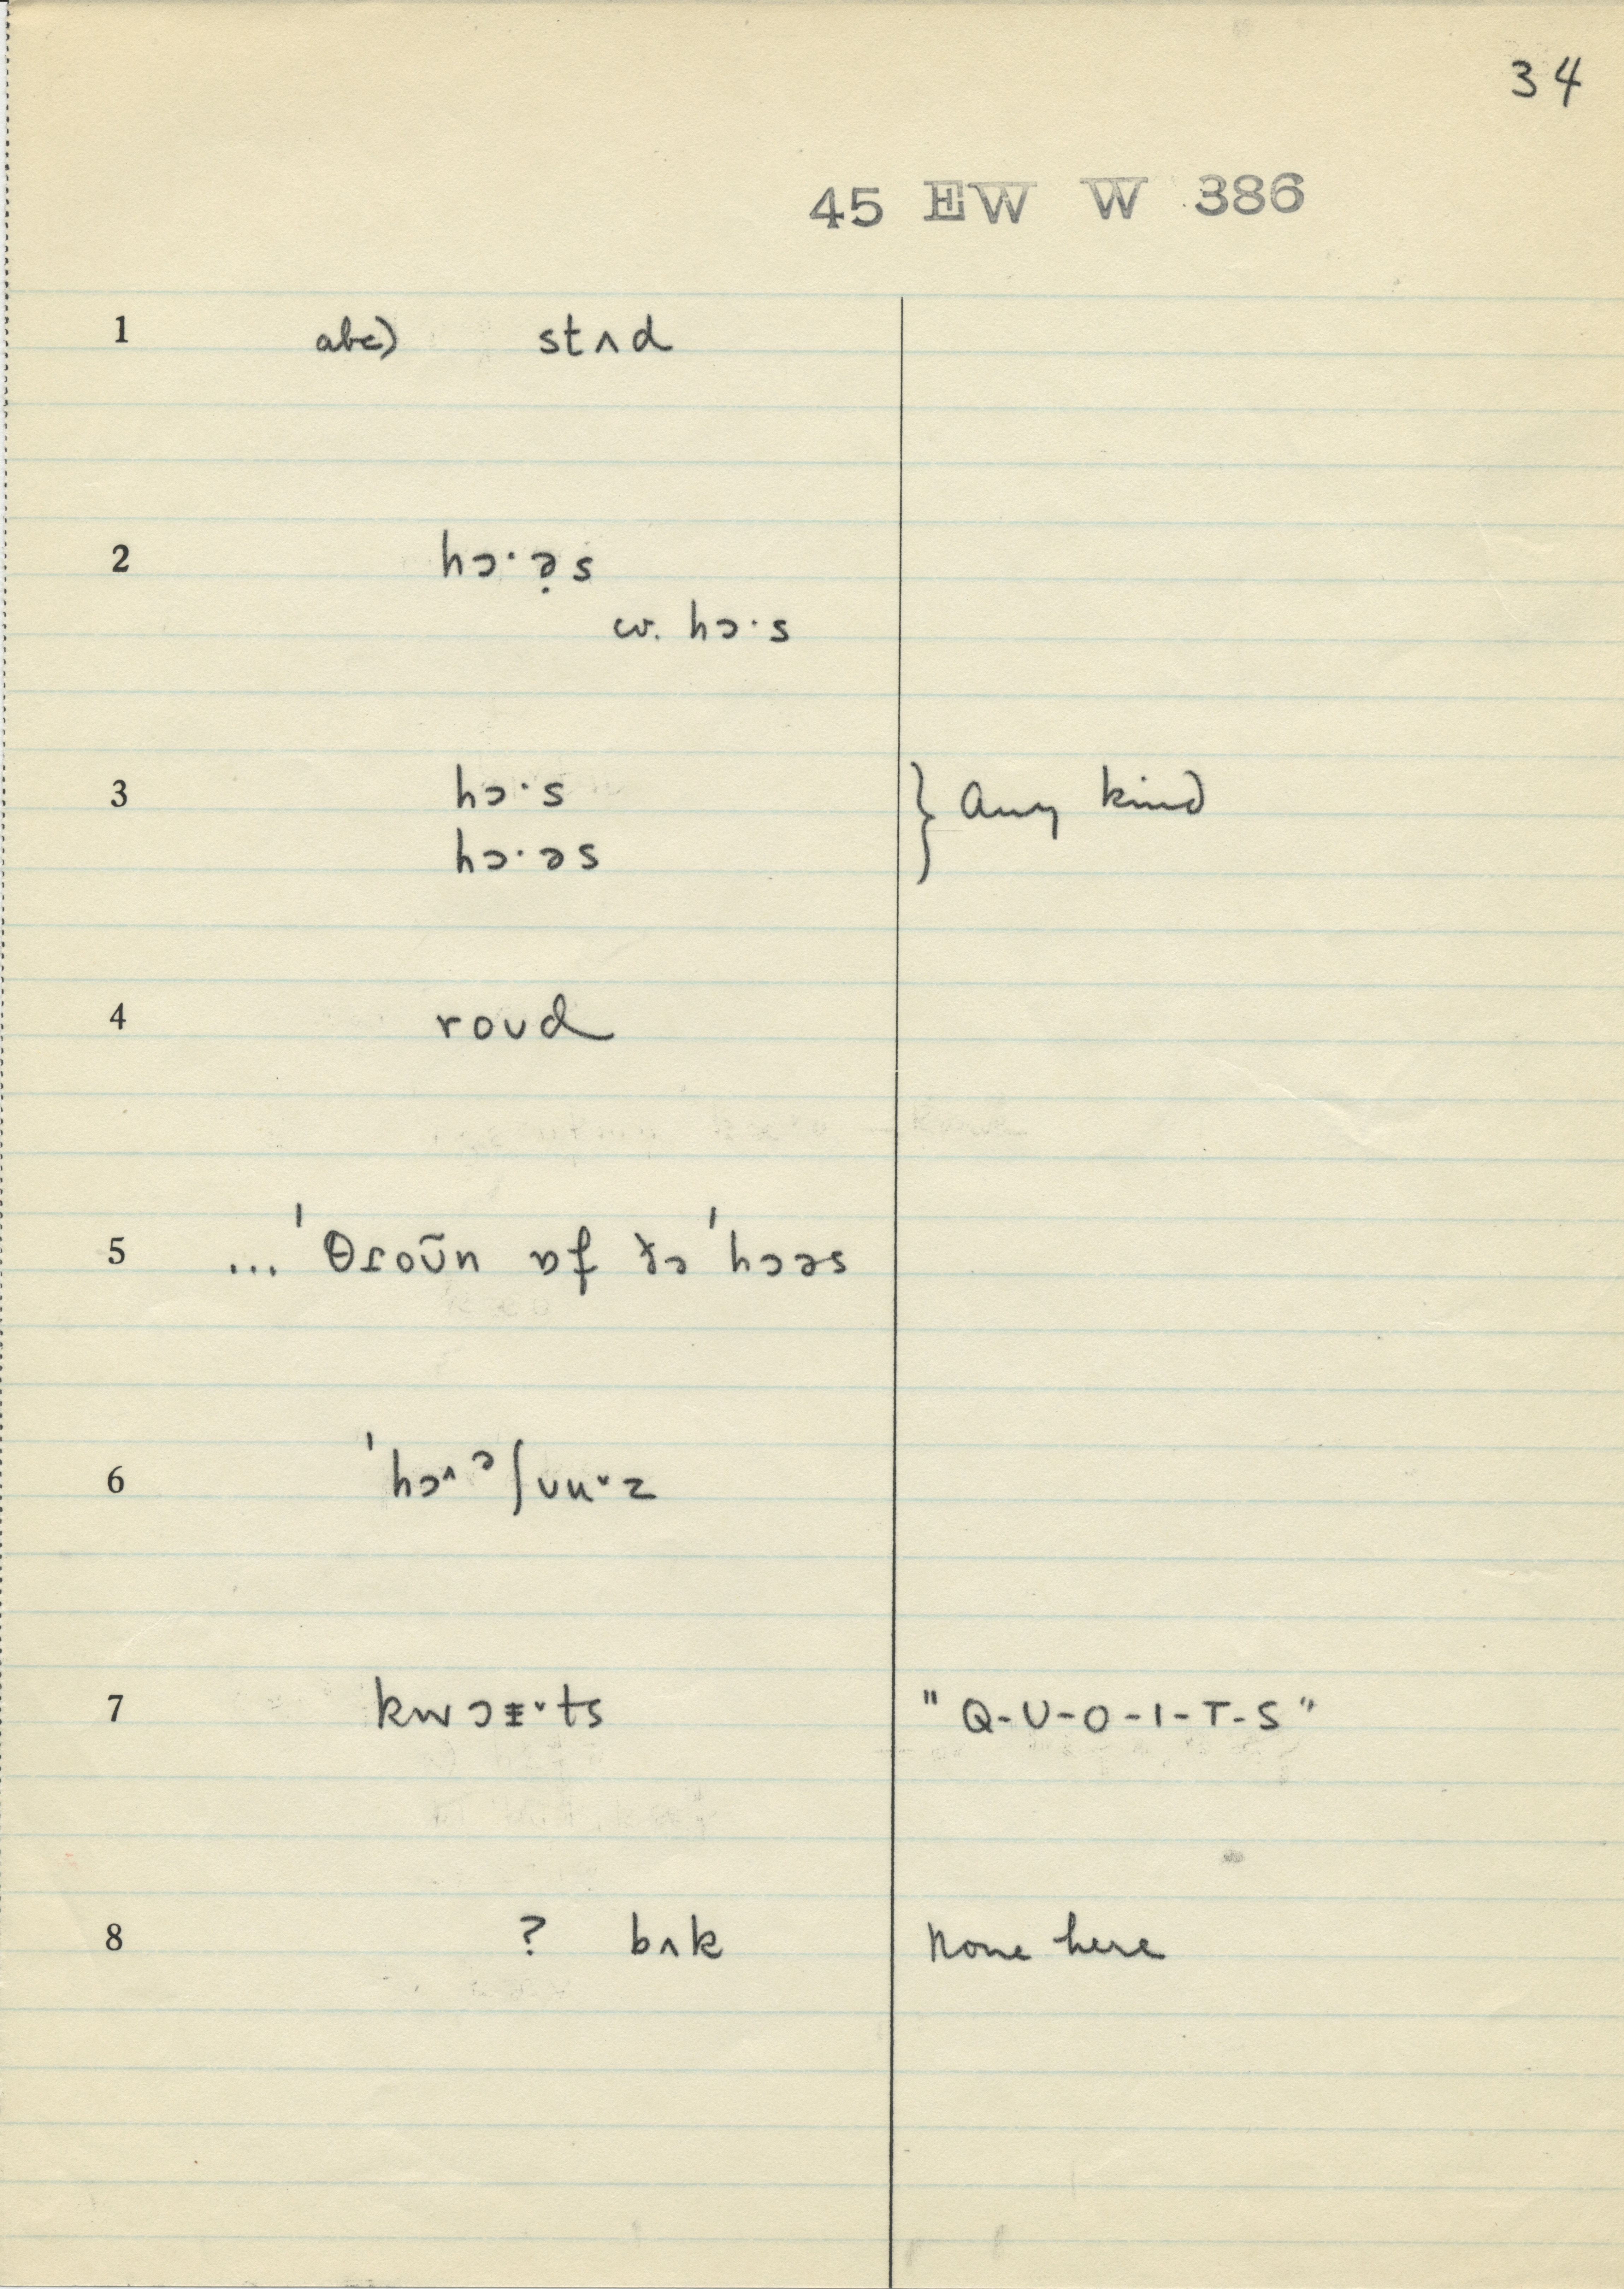 34
45 EW W 386
1 abc) stʌd
2 hɔ·ə̣s
cv. hɔ·s
3 hɔ·s } any kind
hɔ·əs
4 roʊd
5 ...ˈθɾoʊ̃n ɒf ðə ˈhɔəs
6 ˈhɔ˄ᵊʃʊu˅z
7 kwɔɪ˅ts "Q-U-O-I-T-S"
8 ? bʌk none here